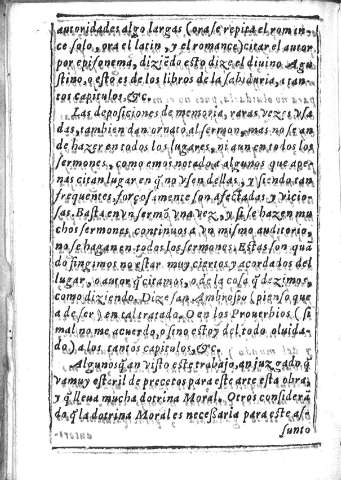 autoridades algo largas (ora se repita el roman-
ce solo, ora el latin, y el romance) citar el autor
por epifonema, diziẽdo esto dize el diuino Agu
stino, o esto es de los libros de la sabiduria, a tan
tos capitulos, &c.
Las deposiciones de memoria, raras vezes vsa
das, tambien dan ornato al sermon, mas no se an
de hazer en todos los lugares, ni aun en todos los
sermones, como emos notado a algunos que ape-
nas citan lugar en q̃ no vsen dellas, y siendo tan
frequentes, forçosamente son afectadas y vicio-
sas. Basta en vn sermõ vna vez, y si se hazen mu
chos sermones continuos a vn mismo auditorio,
no se hagan en todos los sermones. Estas son quã
do fingimos no estar muy ciertos y acordados del
lugar, o autor q̃ citamos, o de la cosa q̃ dezimos,
como diziendo. Dize san Ambrosio (pienso que
a de ser) en tal tratado. O en los Prouerbios (si
mal no me acuerdo, o sino estoy del todo oluida-
do) a los tantos capitulos, &c.
Algunos q̃ an visto este trabajo, an juzgado q̃
va muy esteril de precetos para este arte esta obra,
y q̃ lleua mucha dotrina Moral. Otros considerã
do q̃ la dotrina Moral es necessaria para este as-
sunto